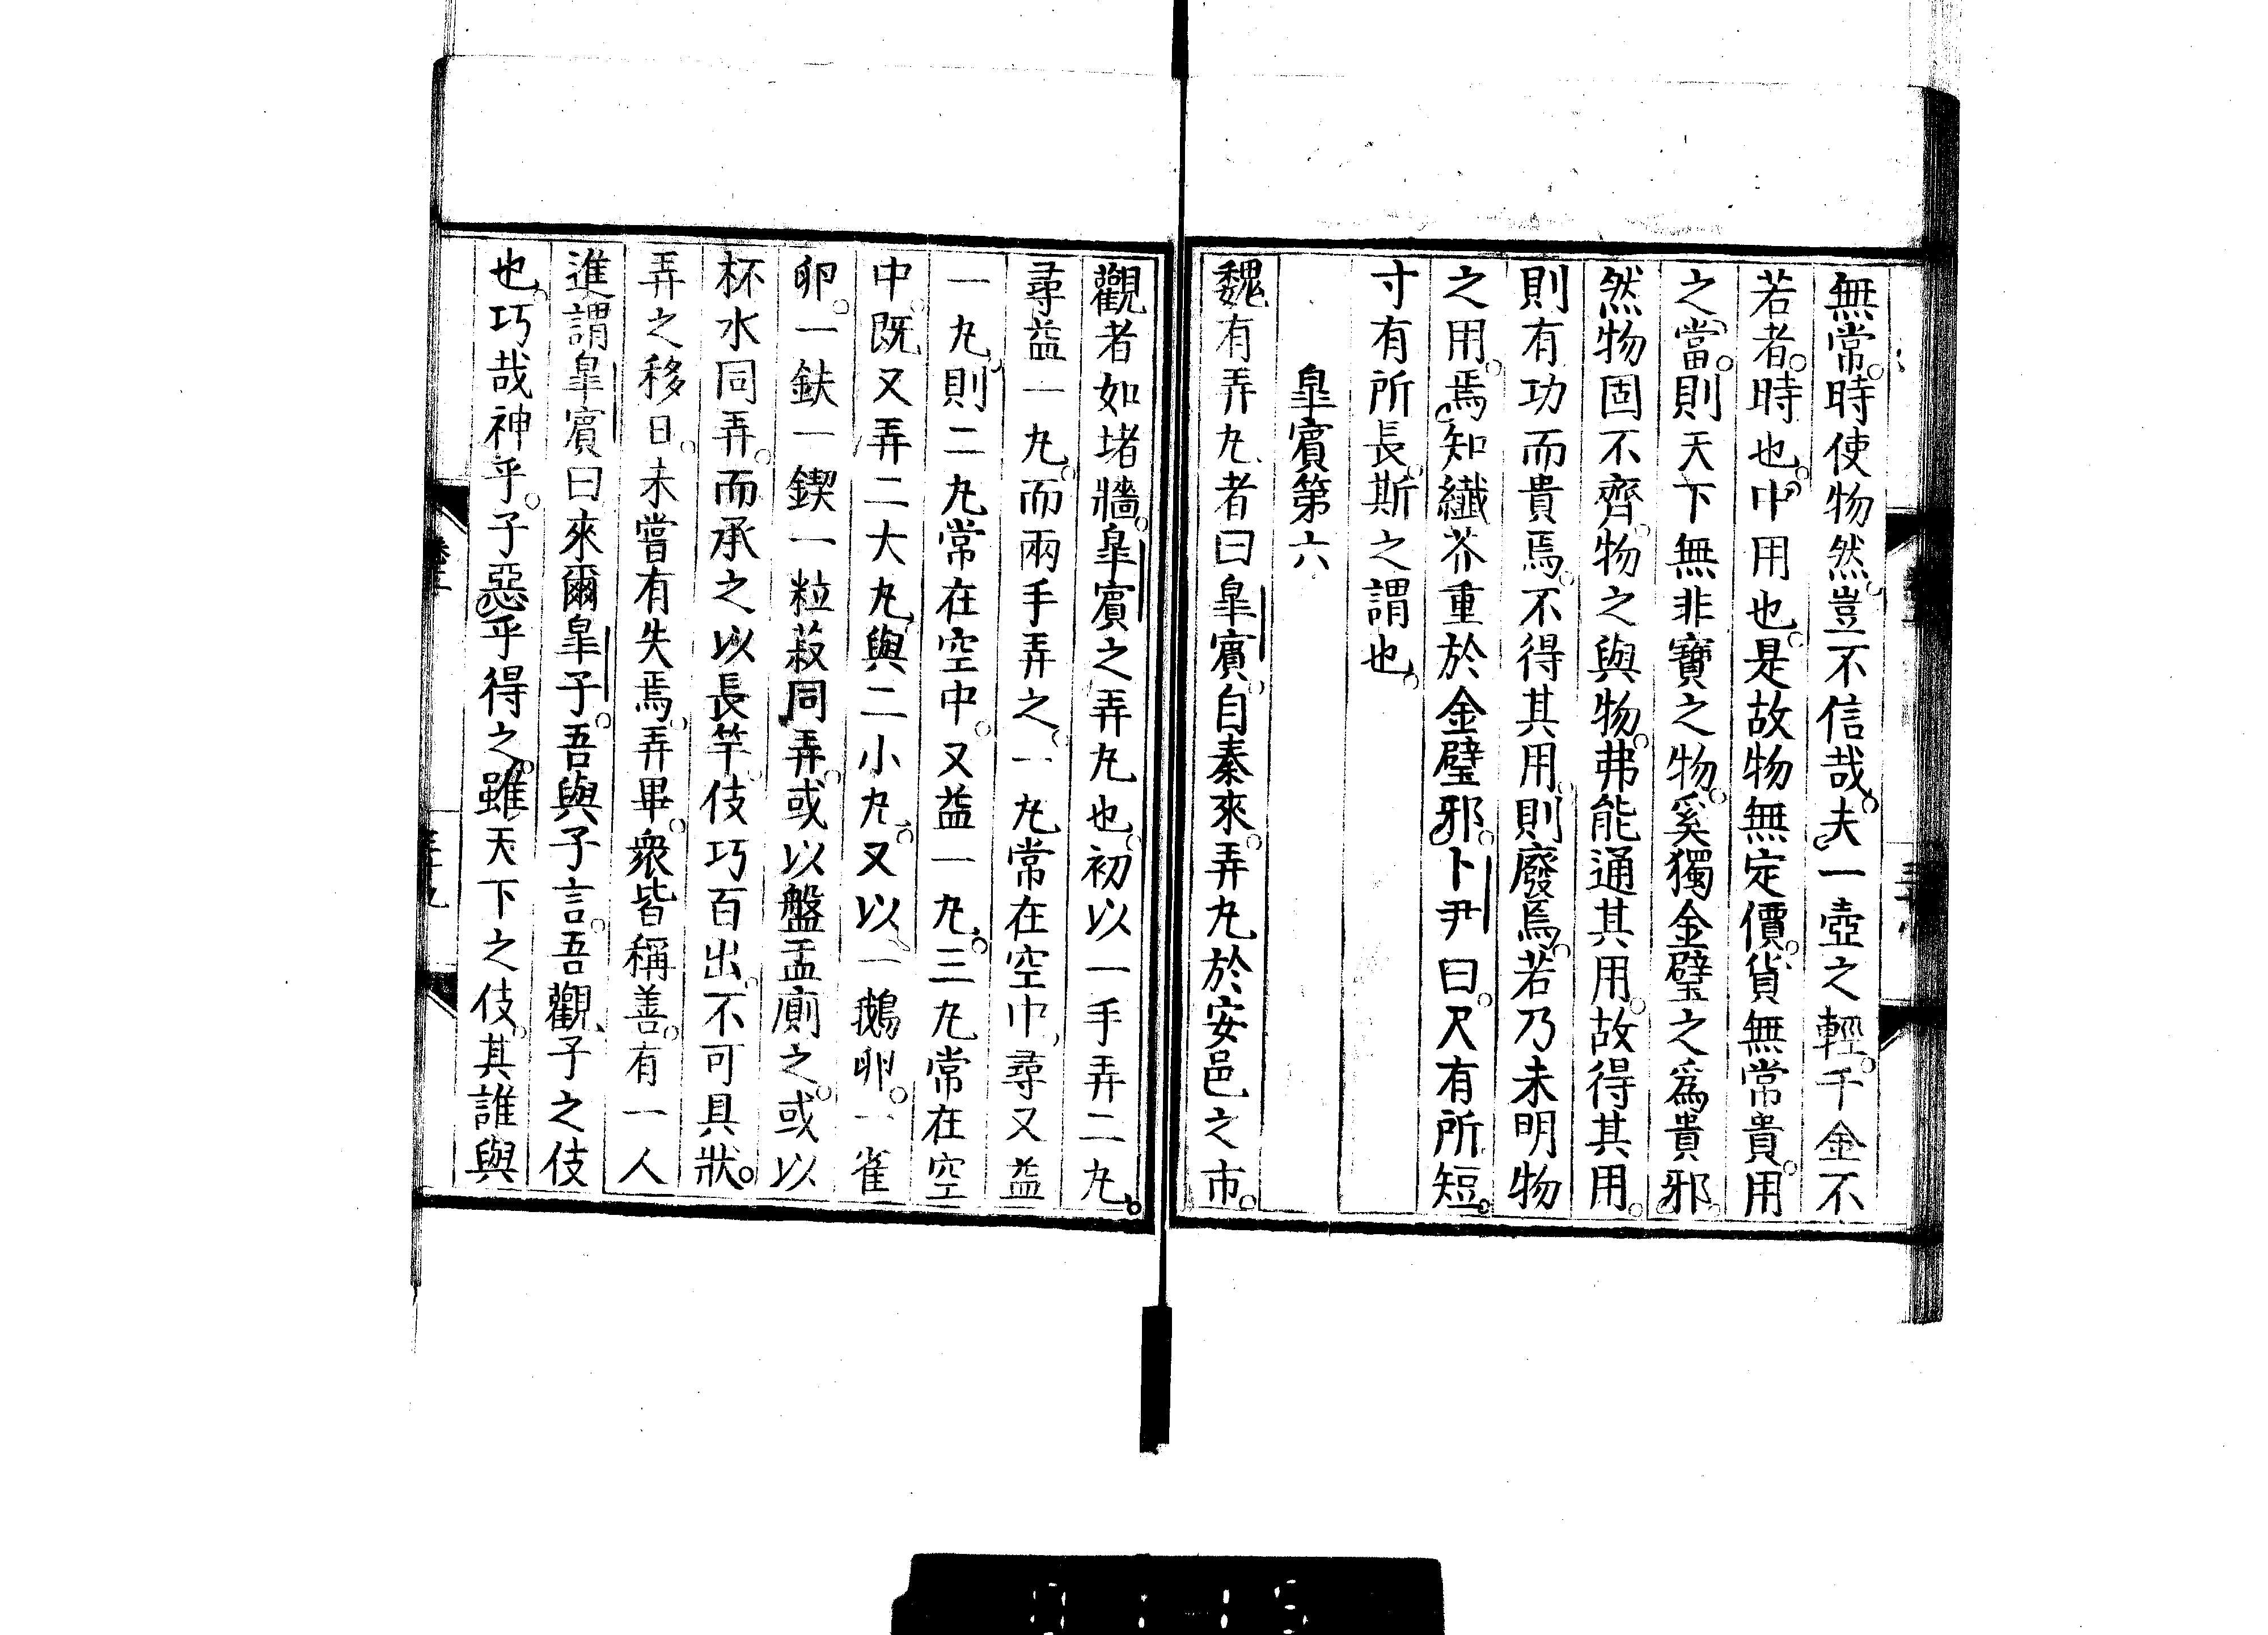 無常。時使物然。豈不信哉。夫一壺之輕。千金不
若者。時也。中用也。是故物無定價。貨無常貴。用
之當。則天下無非寶之物。奚獨金璧之爲貴邪。
然物固不齊。物之與物。弗能通其用。故得其用。
則有功而貴焉。不得其用。則廢焉。若乃未明物
之用。焉知纖芥重於金璧邪。卜尹曰。尺有所短。
寸有所長。斯之謂也。
皐賓第六
魏有弄丸者曰皐賓。自秦來。弄丸於安邑之市。
觀者如堵牆。皐賓之弄丸也。初以一手弄二丸。
尋益一丸。而兩手弄之。一丸常在空中。尋又益
一丸。則二丸常在空中。又益一丸。三丸常在空
中。既又弄二大丸。與二小丸。又以一鵝卵。一雀
卵。一鈇一鍥一粒菽同弄。或以盤盂廁之。或以
杯水同弄。而承之以長竿。伎巧百出。不可具狀。
弄之移日。未嘗有失焉。弄畢。衆皆稱善。有一人
進謂皐賓曰來爾皐子。吾與子言。吾觀子之伎
也。巧哉神乎。子惡乎得之。雖天下之伎。其誰與